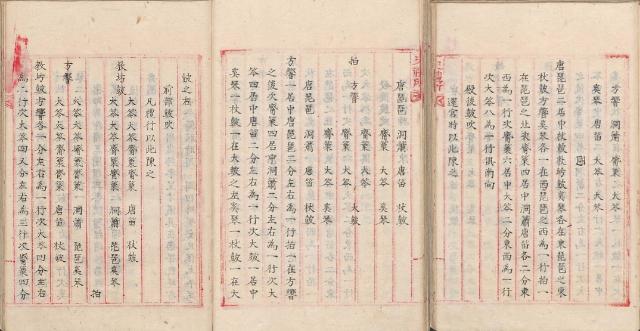 方響 洞簫 觱篥 大笒
奚琴 唐笛 大笒
唐琵琶二居中杖鼓敎坊鼓奚琴各在東琵琶之東
杖鼓方響奚琴各一在西琵琶之西爲一行拍一
在琵琶之北次觱篥居中洞簫唐笛各二分東
西爲一行次觱篥六居中大笒二分東西爲一行
次大笒八爲一行俱南向
殿後鼓吹
還宮時以此陳之
唐琵琶 洞簫 唐笛 杖鼓
觱篥 大笒 奚琴
觱篥 大笒
拍 方響 大鼓
觱篥 大笒
觱篥 大笒 奚琴
唐琵琶 洞簫 唐笛 杖鼓
方響一居中唐琵琶二分左右爲一行拍一在方響
之後次觱篥四居中洞簫二分左右爲一行次大
笒四居中唐笛二分左右爲一行次大鼓一居中
奚琴一杖鼓一在大鼓之左奚琴一杖鼓一在大
鼓之右
前部鼓吹
凡禮行以此陳之
大笒大笒觱篥 唐笛 杖鼓
敎坊鼓 大笒大笒觱篥 洞簫 琵琶奚琴
拍
方響 大笒大笒觱篥 洞簫 琵琶奚琴
大笒大笒觱篥 唐笛 杖鼓
敎坊鼓方響各一分左右爲一行次大笒四分左右
爲二行次大笒四又分左右爲三行次觱篥四分